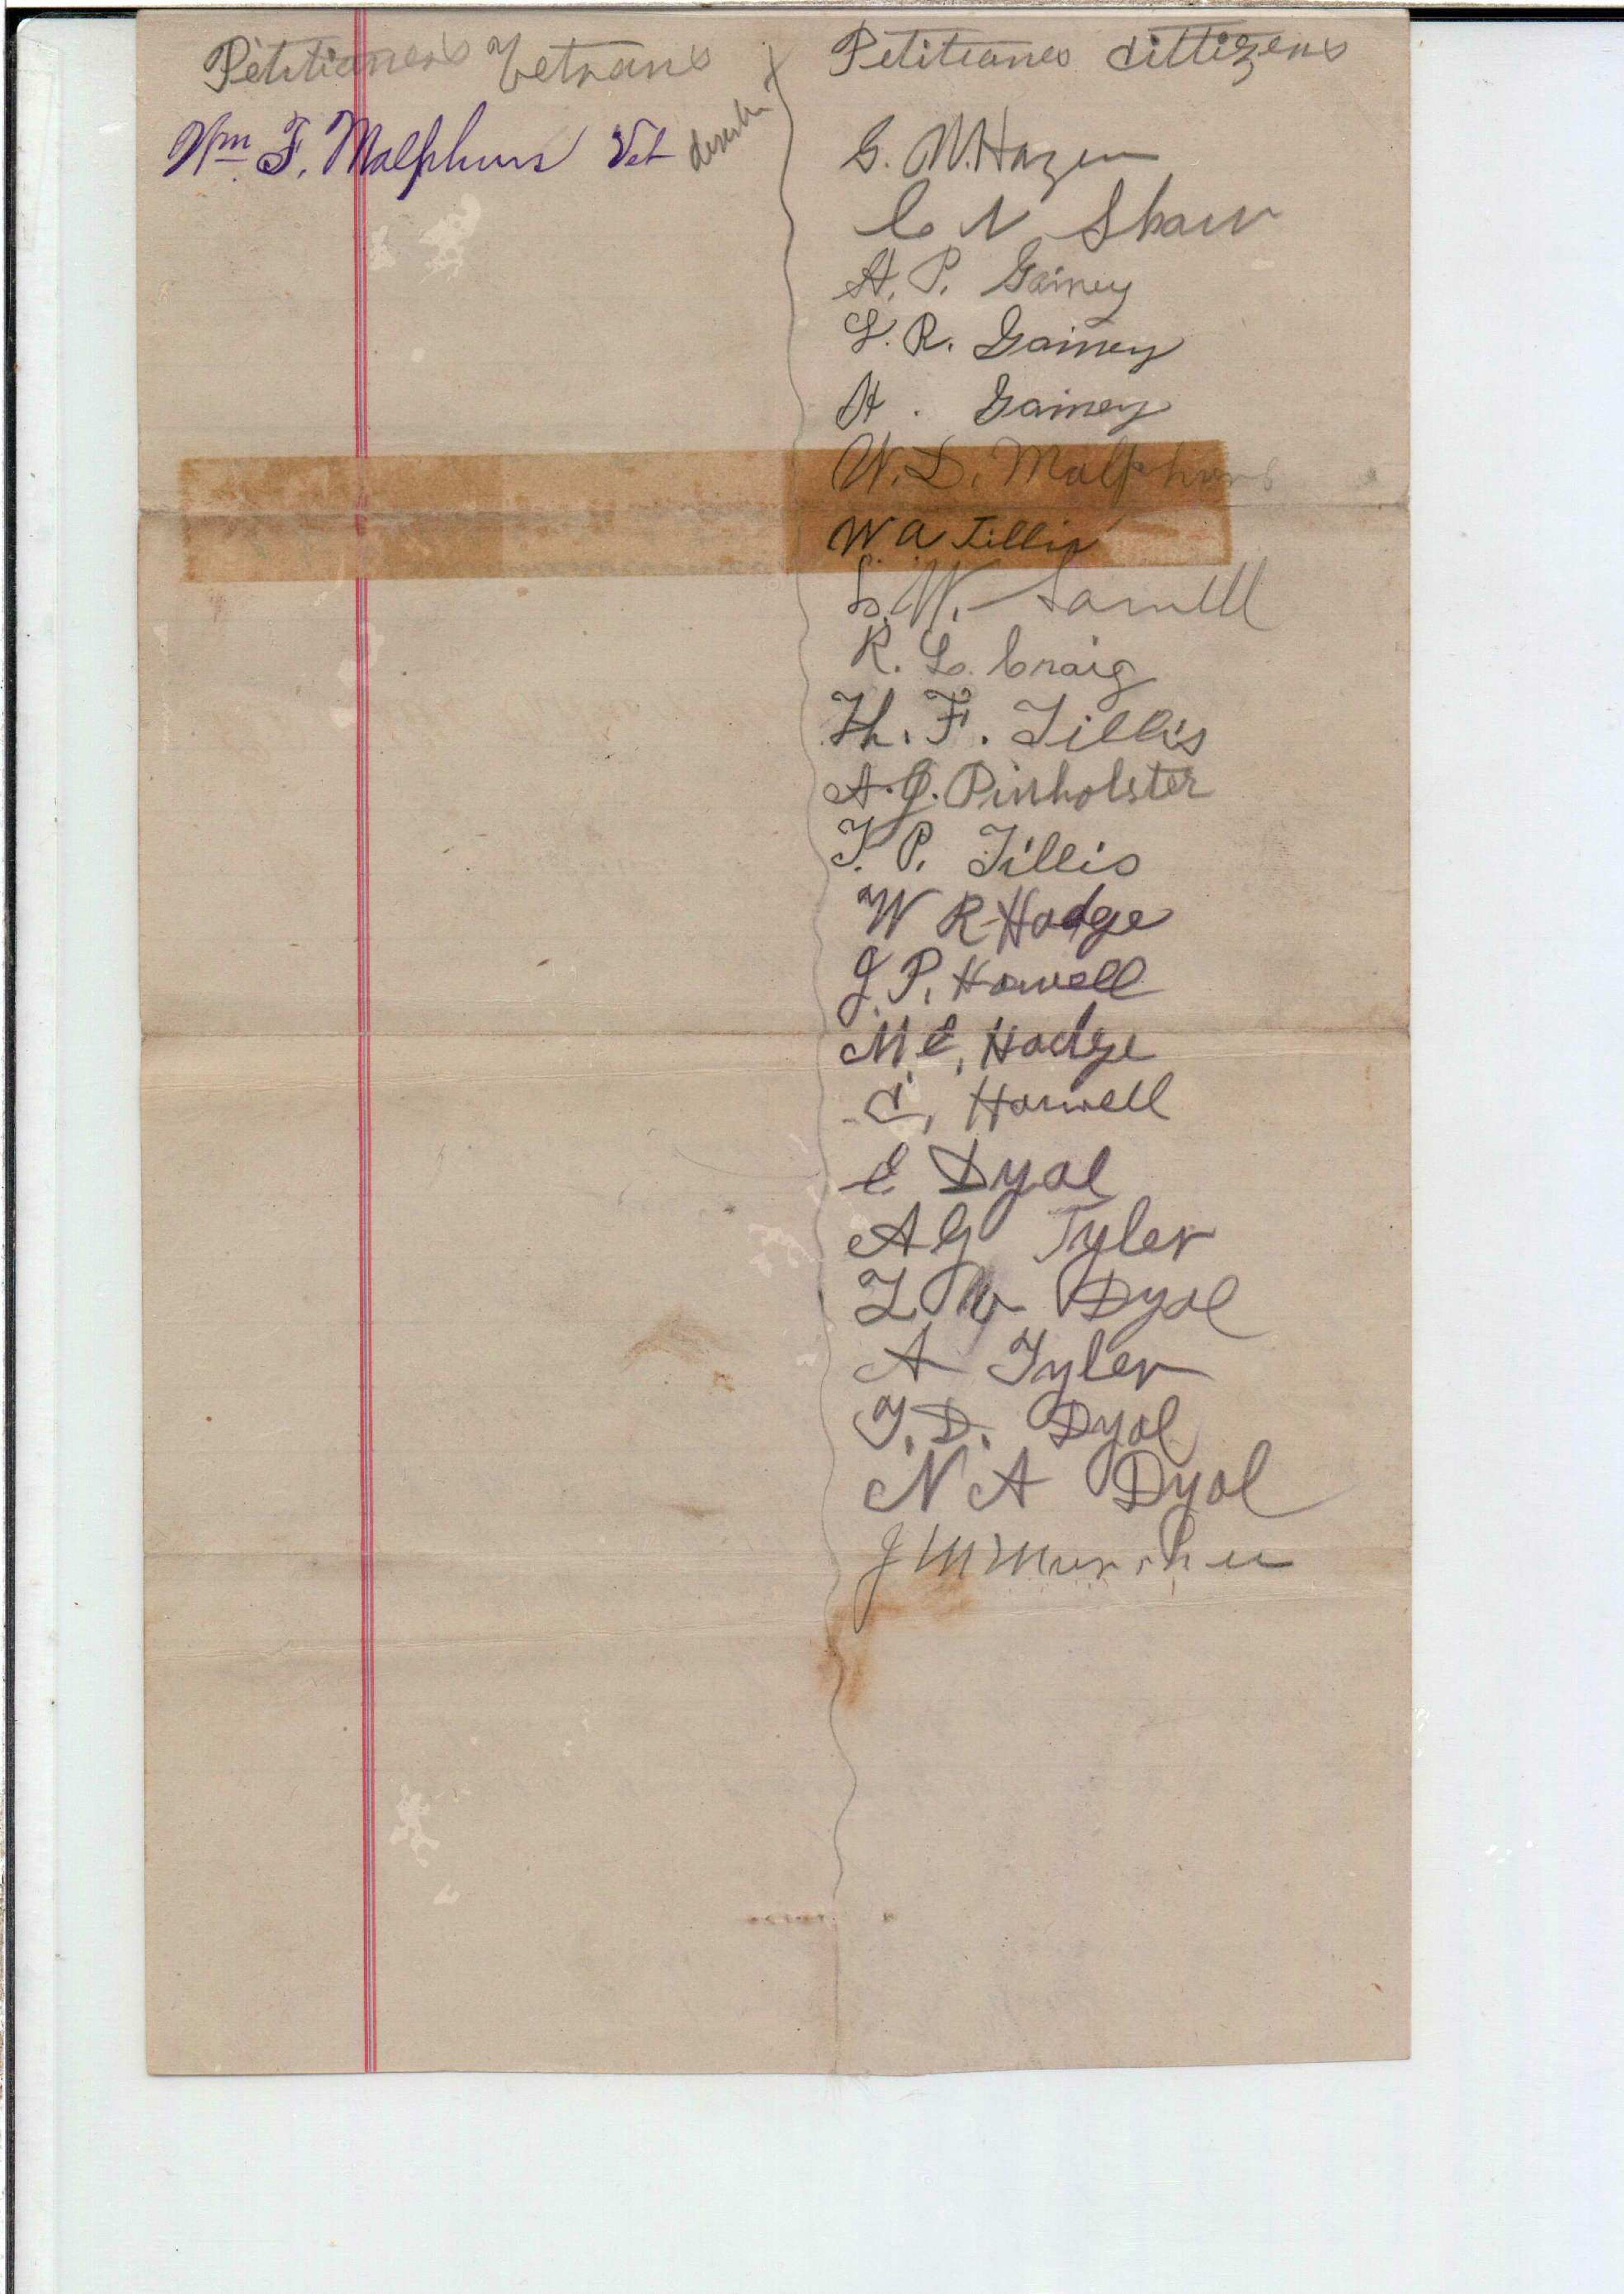 Petitioners Vetrans
Wm F. Malphurs Vet
Petitianes cittizens
G. W. Hazen
C N Shaw
A. P. Gainey
L. R. Gainey
H. Gainey
W. D. Malphurs
W A Tillis
L. W.
R. L. Craig
Th. F. Tillis
A. J. Pinholster
T. P. Tillis
W R Hodge
J. P. Howell
M. E. Hodge
C. Howell
E Dyal
A G Tyler
L Dyal
A Tyler
T. D. Dyal
N A Dyal
J M